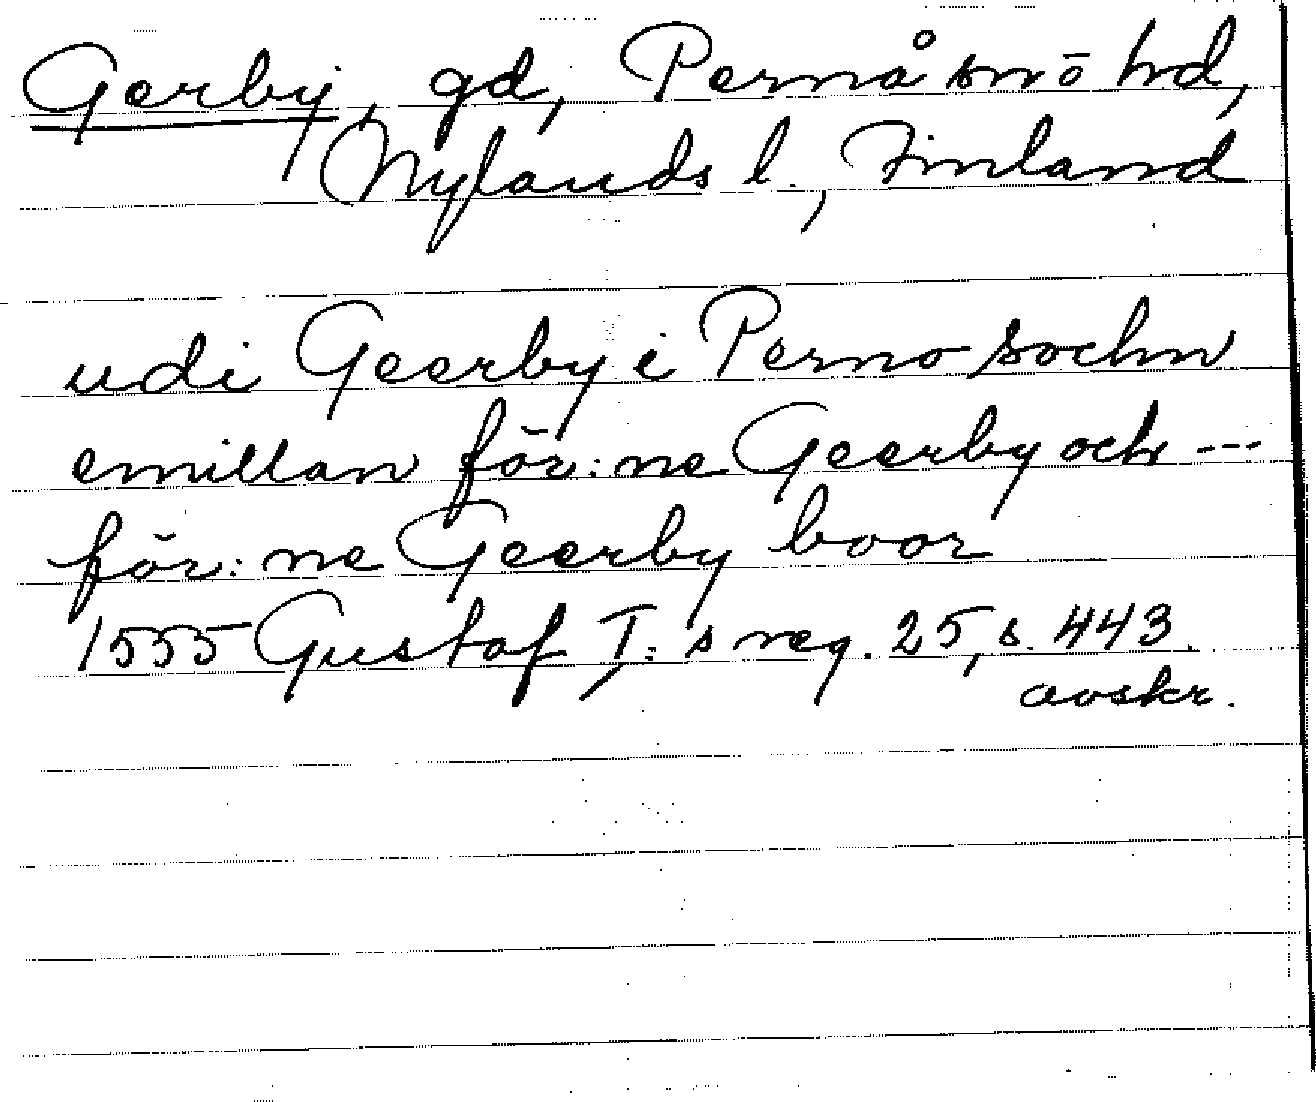 Gerby, gd, Pernå sn o hd,
Nylands l., Finland
udi Geerby i Perno sochn
emillan för:ne Geerby och ---
för:ne Geerby boor
1555 Gustaf I:s reg. 25, s. 443.
avskr.